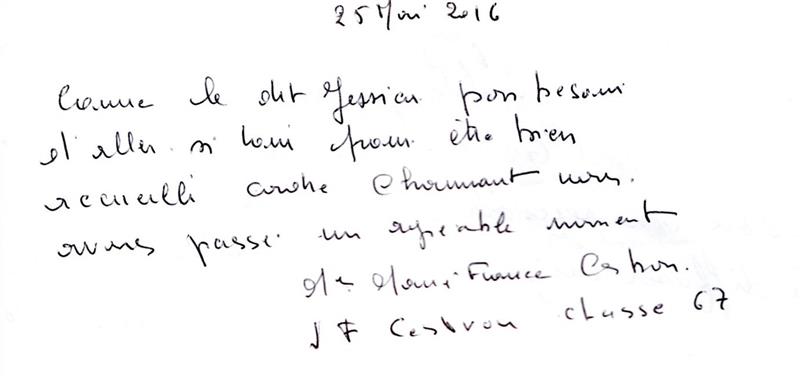 25 Mai 2016
Comme le dit Jessica pas besoin
d'aller si loin pour être bien
accueilli cadre Charmant nous
avons passé un agréable moment
Marie France Cestron.
J F Cestron classe 67